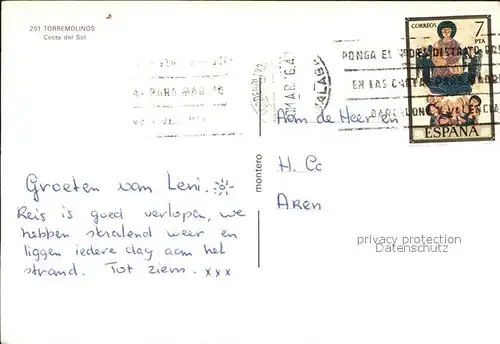 251 TORREMOLINOS
Costa del Sol
CORREOS 7
PTA
PONGA EL DISTRITO POSTAL
EN LAS CARTAS PARA MADRID
BARCELONA Y VALENCIA
ESPAÑA
MALAGA
montero
Aan de Heer en
H. Co
Aren
Groeten van Leni.
Reis is goed verlopen, we
hebben stralend weer en
liggen iedere dag aan het
strand. Tot ziens. xxx
privacy protection
Datenschutz